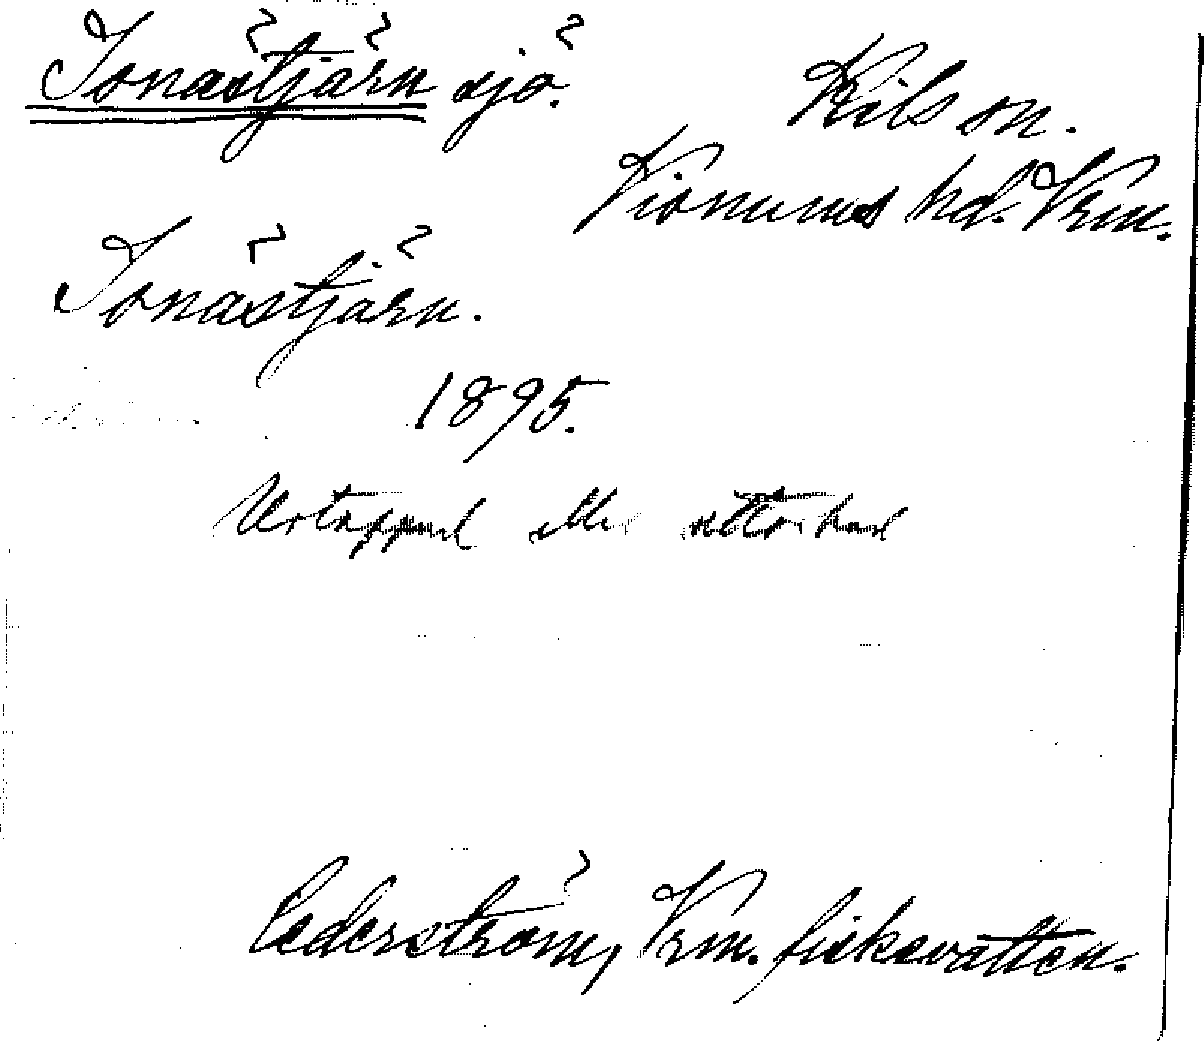 Jonästjärn sjö.
Kils sn.
Visnums hd. Vrm.
Jonästjärn.
1895.
Urtappad eller uttorkad
Cederström, Vrm. fiskevatten.